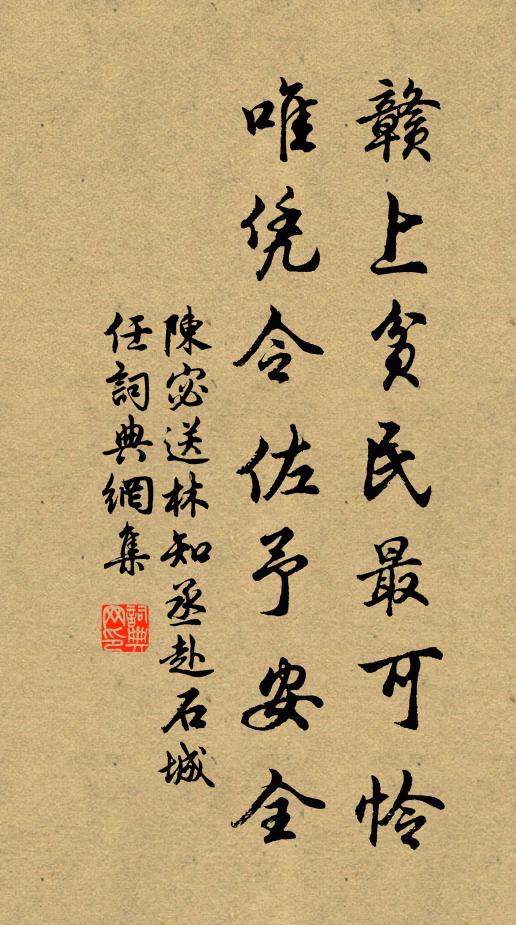 赣上貧民最可怜
唯凭令佐予安全
陳宓送林知丞赴石城
任詞典網集
詞典
网印